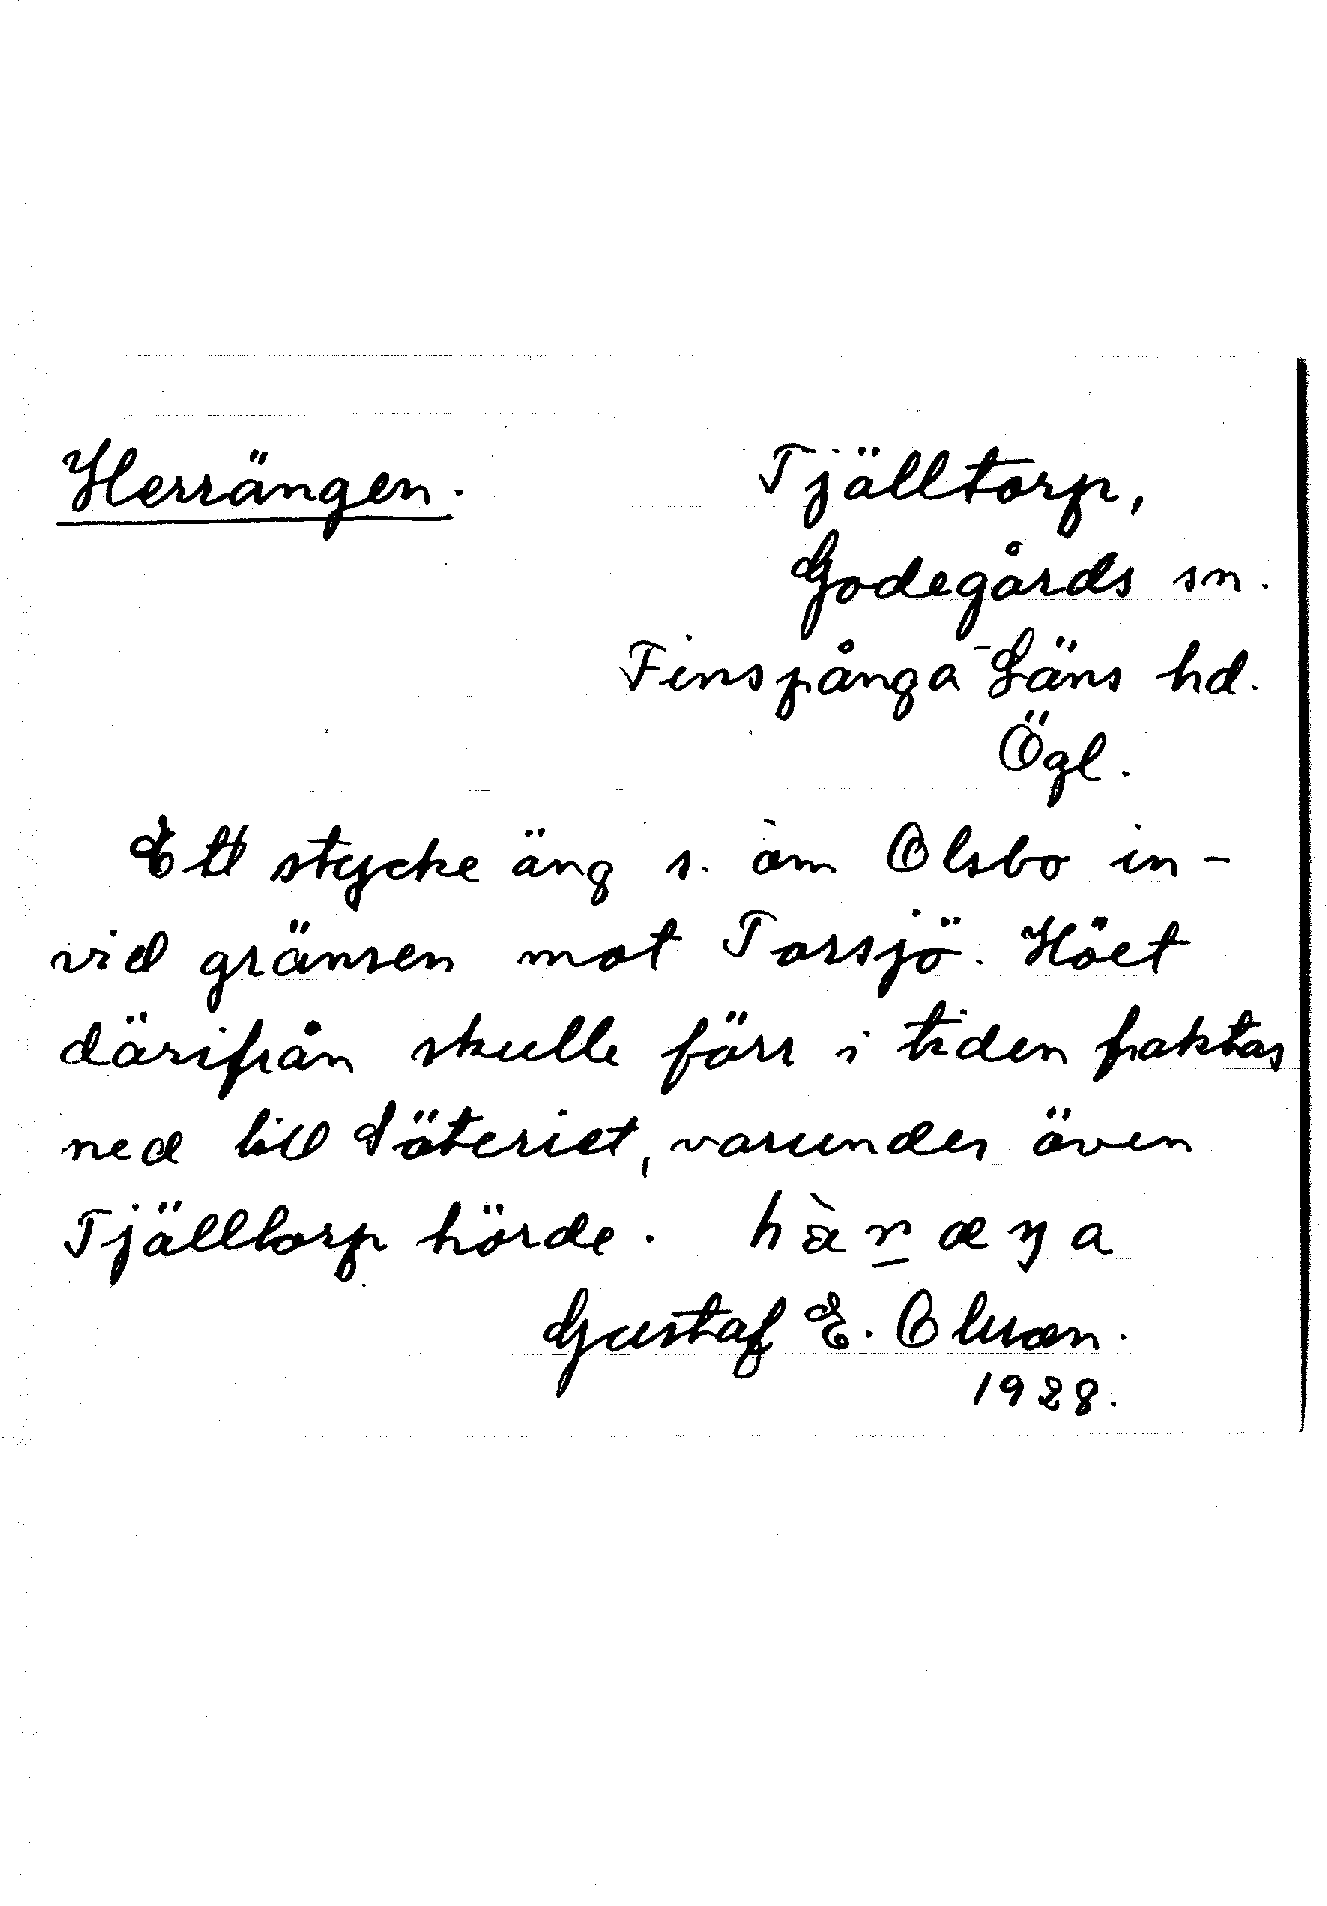 Herrängen.
Tjälltorp,
Godegårds sn.
Finspånga-Läns hd.
Ögl.
Ett stycke äng s. om Olsbo in-
vid gränsen mot Torsjö. Höet
därifrån skulle förr i tiden fraktas
ned till Säteriet, varunder även
Tjälltorp hörde.
Gustaf E. Olsson.
1928.